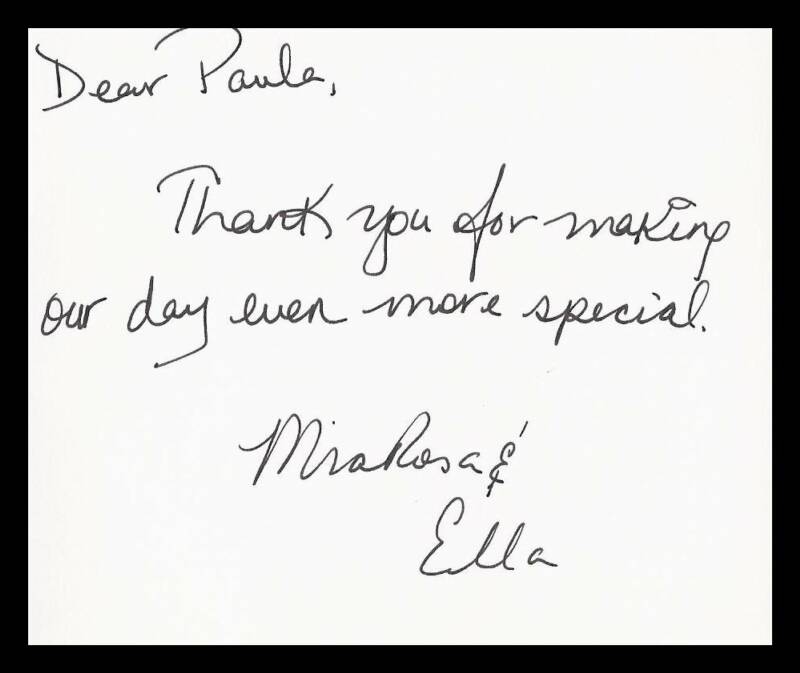 Dear Paula,
Thank you for making
our day even more special.
MiraRosa &
Ella